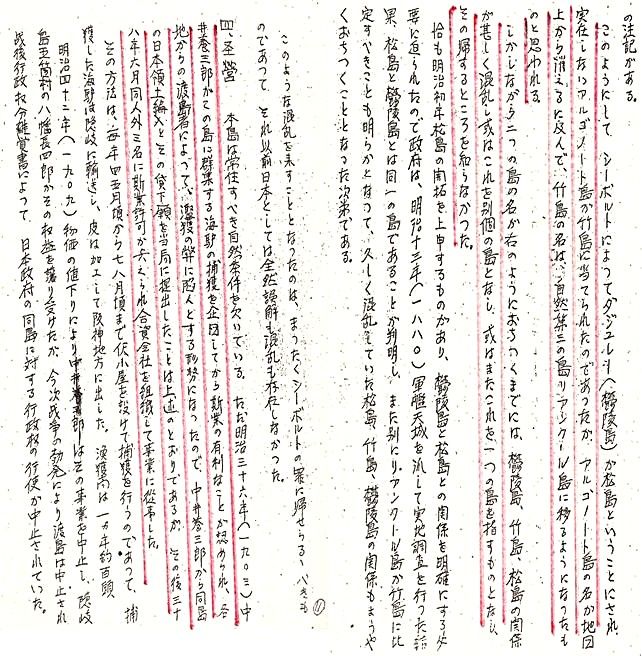 の注記がある。
このようにして、シーボルトによってダジュレート(欝陵島)が松島ということにされ、
実在しないアルゴノート島が竹島に当てられたのであったが、アルゴノート島の名が地図
上から消えるに反んで、竹島の名は、自然第三の島リアンクール島に移るようになったも
のと思われる。
しかしながら二つの島の名が右のようにおちつくまでには、欝陵島、竹島、松島の関係
が甚しく混乱し或はこれを別個の島となし、或はまたこれを一つの島を指すものとなし
その帰するところを知らなかった。
恰も明治初年松島の開拓を上申するものがあり、欝陵島と松島との関係を明確にする必
要に迫られたので政府は、明治十三年(一八八〇)軍艦天城を派して実地調査を行った結
果、松島と欝陵島とは同一の島であることが判明し、また別にリアンクール島が竹島に比
定すべきことも明らかとなって、久しく混乱していた松島、竹島、欝陵島の関係もようや
くおちつくこととなった次第である。
このような混乱を来すこととなったのは、まったくシーボルトの罪に帰せらるゝべきも
のであって、それ以前日本としては全然誤解も混乱も存在しなかった。
11
四、経営 本島は常住すべき自然条件を欠いている。ただ明治三十六年(一九〇三)中
井養三郎がこの島に群集する海驢の捕獲を企図してから斯業の有利なことが認められ、各
地からの渡島者によって、濫獲の弊に陥入とする形勢になったので、中井養三郎から同島
の日本領土編入とその貸下願を当局に提出したことは上述のとおりであるが、その後三十
八年六月同人外三名に斯業許可が与えられ合資会社を組織して事業に従事した。
その方法は、毎年四五月頃から七八月頃まで伏小屋を設けて捕獲を行うのであって、捕
獲した海驢は隠岐に輸送し、皮は加工して阪神地方に出した。漁獲高は一ヵ年約百頭
明治四十二年(一九〇九)物価の値下りにより中井養三郎はその事業を中止し、隠岐
島五箇村の八幡長四郎がその権益を譲り受けたが、今次戦争の勃発により渡島は中止され
戦後行政权分離覚書によって、日本政府の同島に対する行政权の行使が中止されていた。